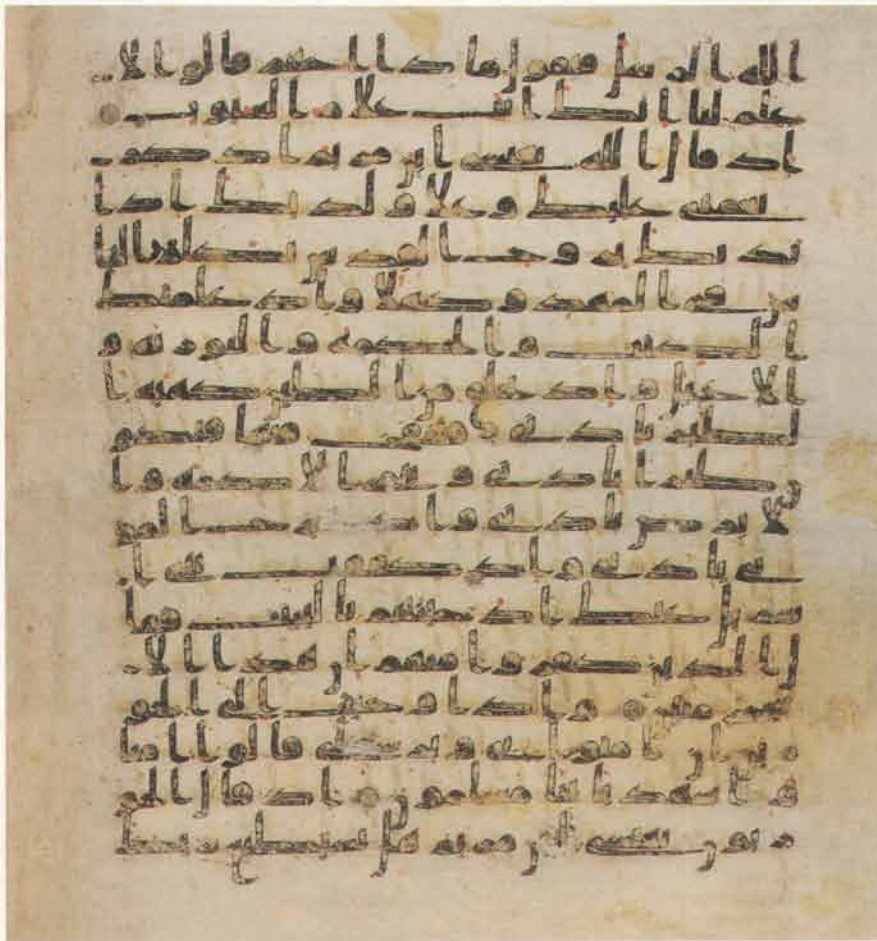 الله الرسل فيقول ماذا اجبتم قالوا لا
علم لنا انك انت علام الغيوب
اذ قال الله يعيسى ابن مريم اذكر
نعمتى عليك وعلا ولدتك اذ ا
يدتك بروح القدس تكلم النا
س فى المهد وكهلا واذ علمتك
الكتب والحكمة والتورية و
الانجيل واذ تخلق من الطين كهية ا
لطير باذنى فتنفخ فيها فتكو
ن طيرا باذنى وتبرى الاكمه وا
لابرص باذنى واذ تخرج المو
تى باذنى واذ كففت بنى ا
سريل عنك اذ جيتهم بالبينت فقا
ل الذين كفروا منهم ان هذا الا
سحر مبين واذ اوحيت الى الحو
رين ان امنوا بى وبرسولى قالوا امنا
واشهد باننا مسلمون اذ قال الحو
ريون يعيسى ابن مريم هل يستطيع ربك